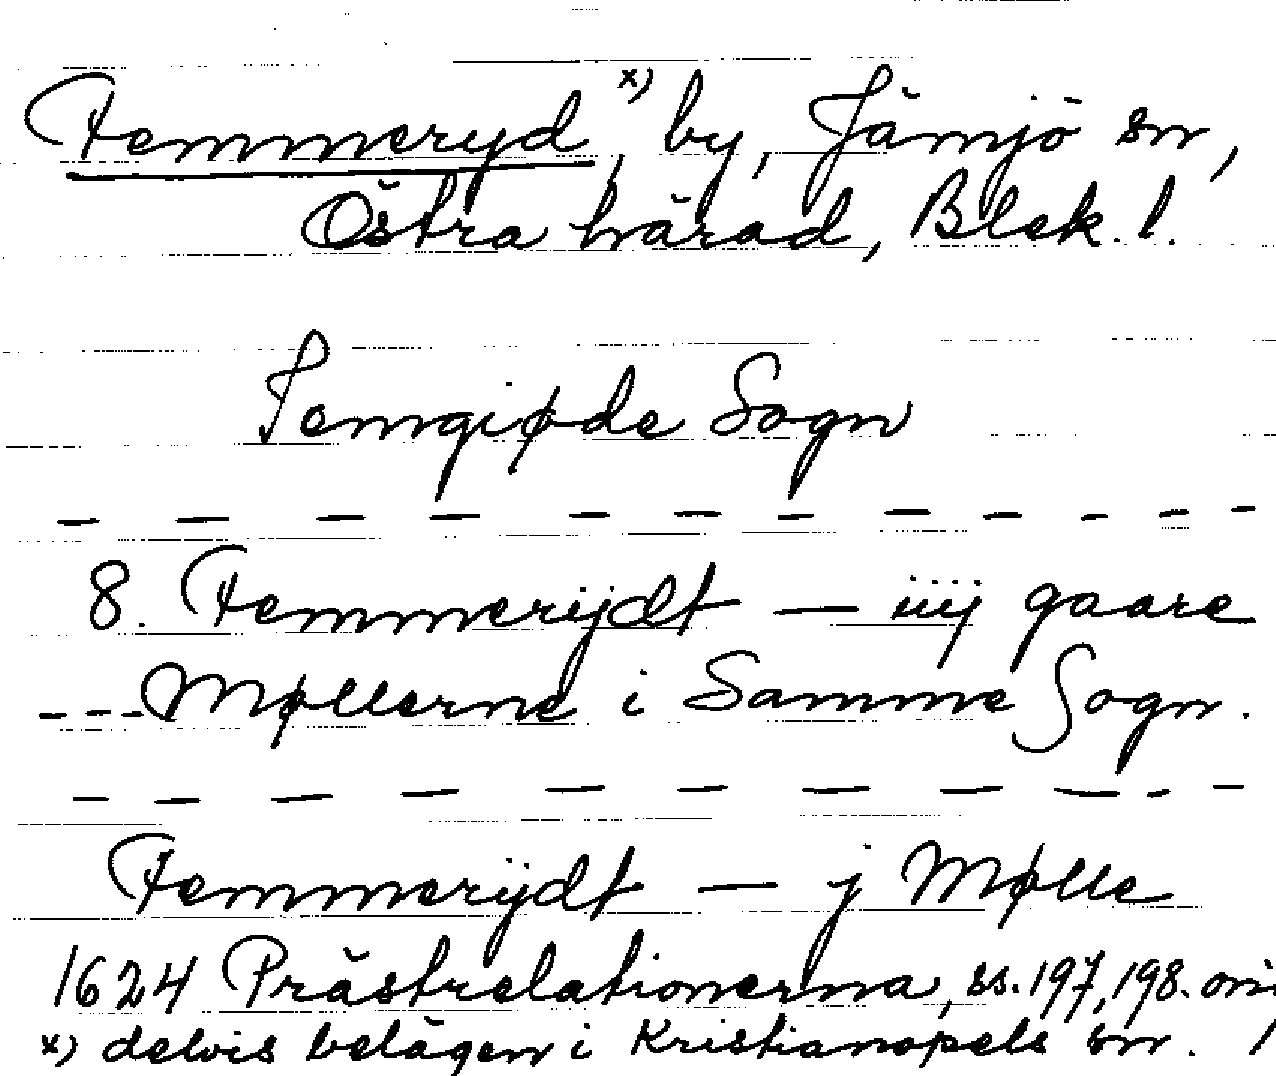 Femmeryd x), by, Jämjö sn,
Östra härad, Blek. l.
Jemgiøde Sogn
8. Femmerÿdt — iiij gaare
Møllerne i Samme Sogn.
Femmerÿdt — j Mølle
1624 Prästrelationerna, ss. 197, 198. ori
x) delvis belägen i Kristianopels sn.